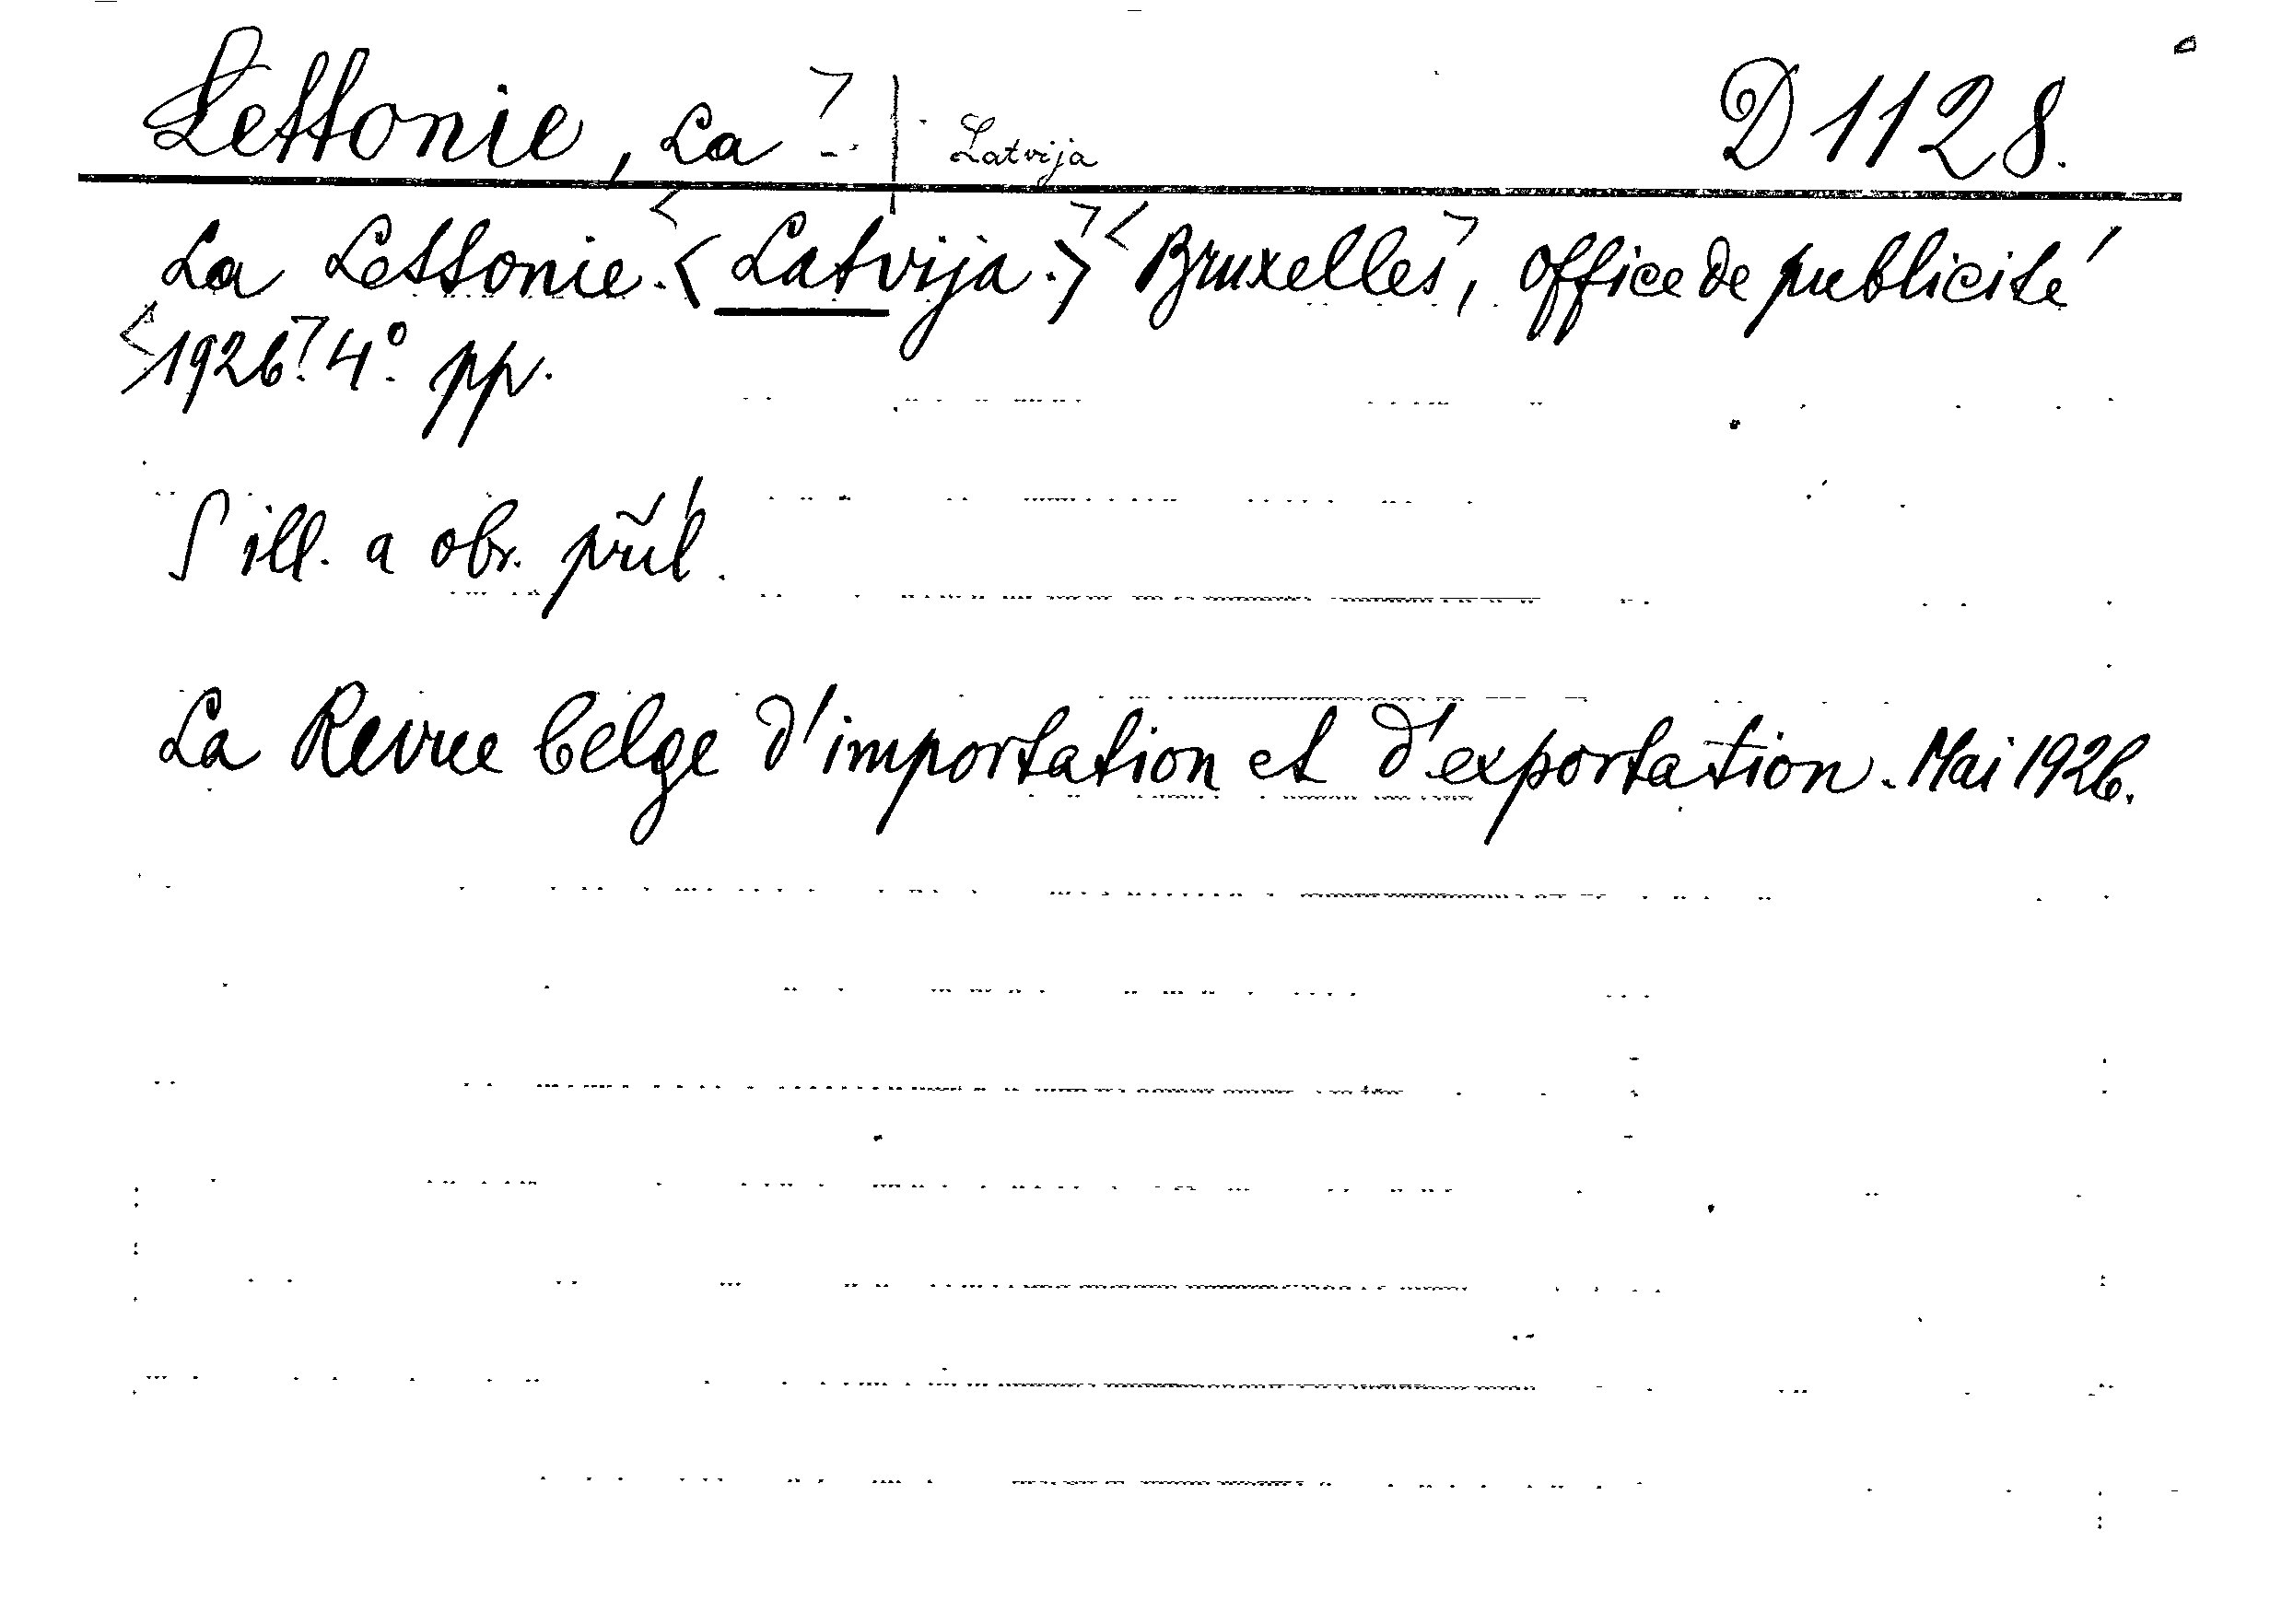 Lettonie, La | Latvija D 1128.
La Lettonie. <Latvija.> Bruxelles, Office de publicité
1926. 4° pp.
S ill. a obr. příl.
La Revue belge d'importation et d'exportation. Mai 1926.